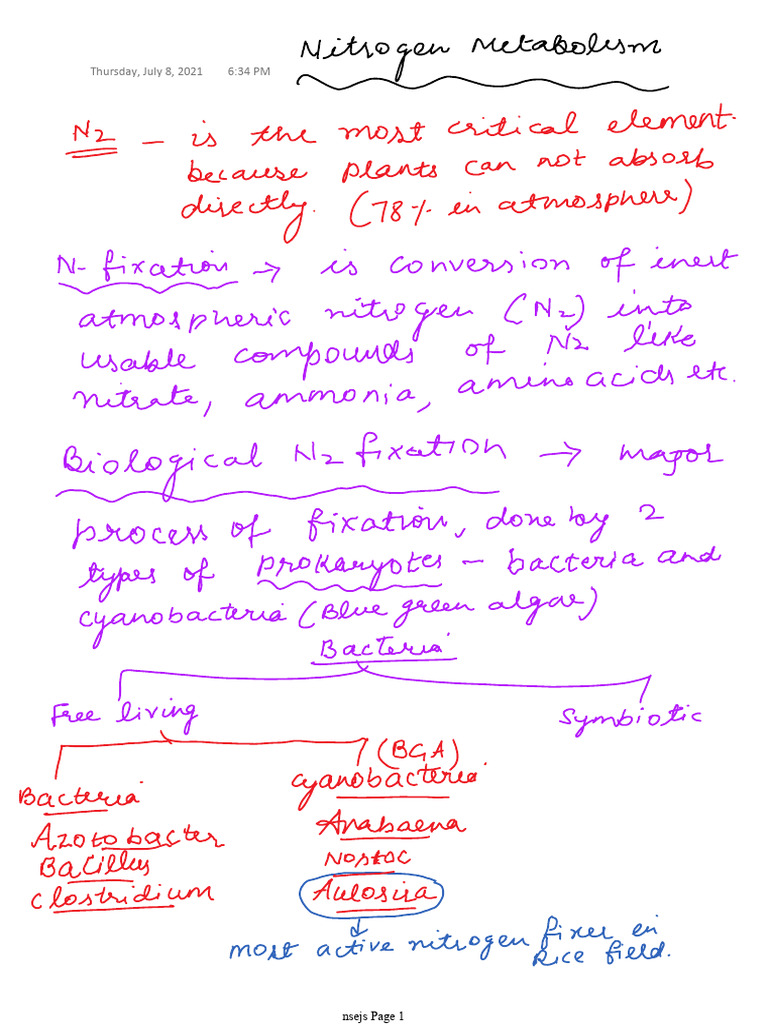 Nitrogen Metabolism
Thursday, July 8, 2021 6:34 PM
N2 – is the most critical element.
because plants can not absorb
directly. (78% in atmosphere)
N-fixation → is conversion of inert
atmospheric nitrogen (N2) into
usable compounds of N2 like
nitrate, ammonia, amino acids etc.
Biological N2 fixation → major
process of fixation, done by 2
types of prokaryotes – bacteria and
cyanobacteria (Blue green algae)
Bacteria
Free living Symbiotic
(BGA)
Bacteria cyanobacteria
Azotobacter Anabaena
Bacillus Nostoc
Clostridium Aulosira
most active nitrogen fixer in
Rice field.
nsejs Page 1